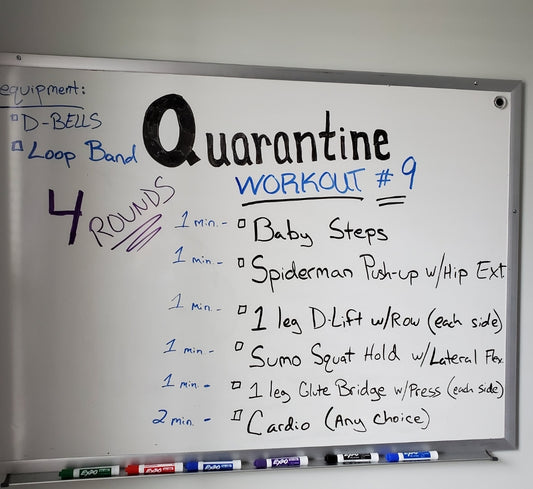 equipment:
D-BELLS
Loop Band
Quarantine
WORKOUT #9
4 ROUNDS
1 min. - Baby Steps
1 min. - Spiderman Push-up w/Hip Ext
1 min. - 1 leg D-Lift w/Row (each side)
1 min. - Sumo Squat Hold w/Lateral Flex.
1 min. - 1 leg Glute Bridge w/Press (each side)
2 min. - Cardio (Any Choice)
EXPO EXPO EXPO EXPO EXPO EXPO